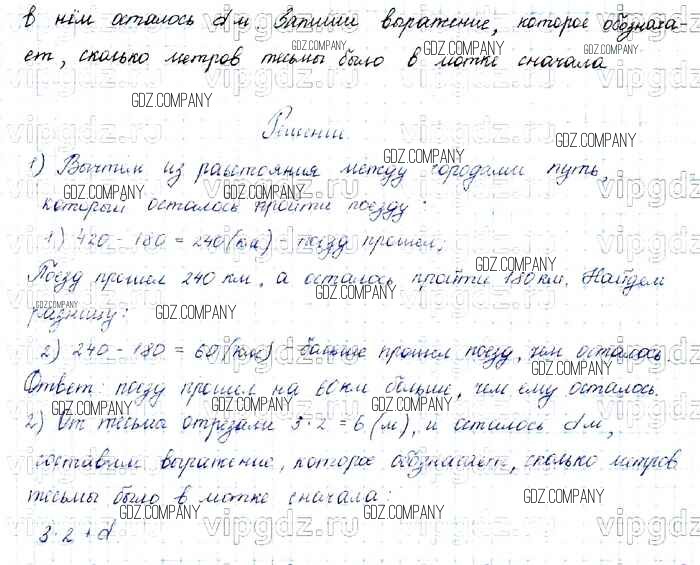 в нём осталось d м. Запиши выражение, которое обознача-
ет, сколько метров тесьмы было в мотке сначала
Решение.
1) Вычтим из расстояния между городами путь,
который осталось пройти поезду:
1) 420 - 180 = 240 (км) - поезд прошел;
Поезд прошел 240 км, а осталось пройти 180 км. Найдем
разницу:
2) 240 - 180 = 60 (км) - больше прошел поезд, чем осталось.
Ответ: поезд прошел на 60 км больше, чем ему осталось.
2) От тесьмы отрезали 3·2 = 6 (м), и осталось d м,
составим выражение, которое обозначает, сколько метров
тесьмы было в мотке сначала:
3·2 + d
GDZ.COMPANY
vipgdz.ru